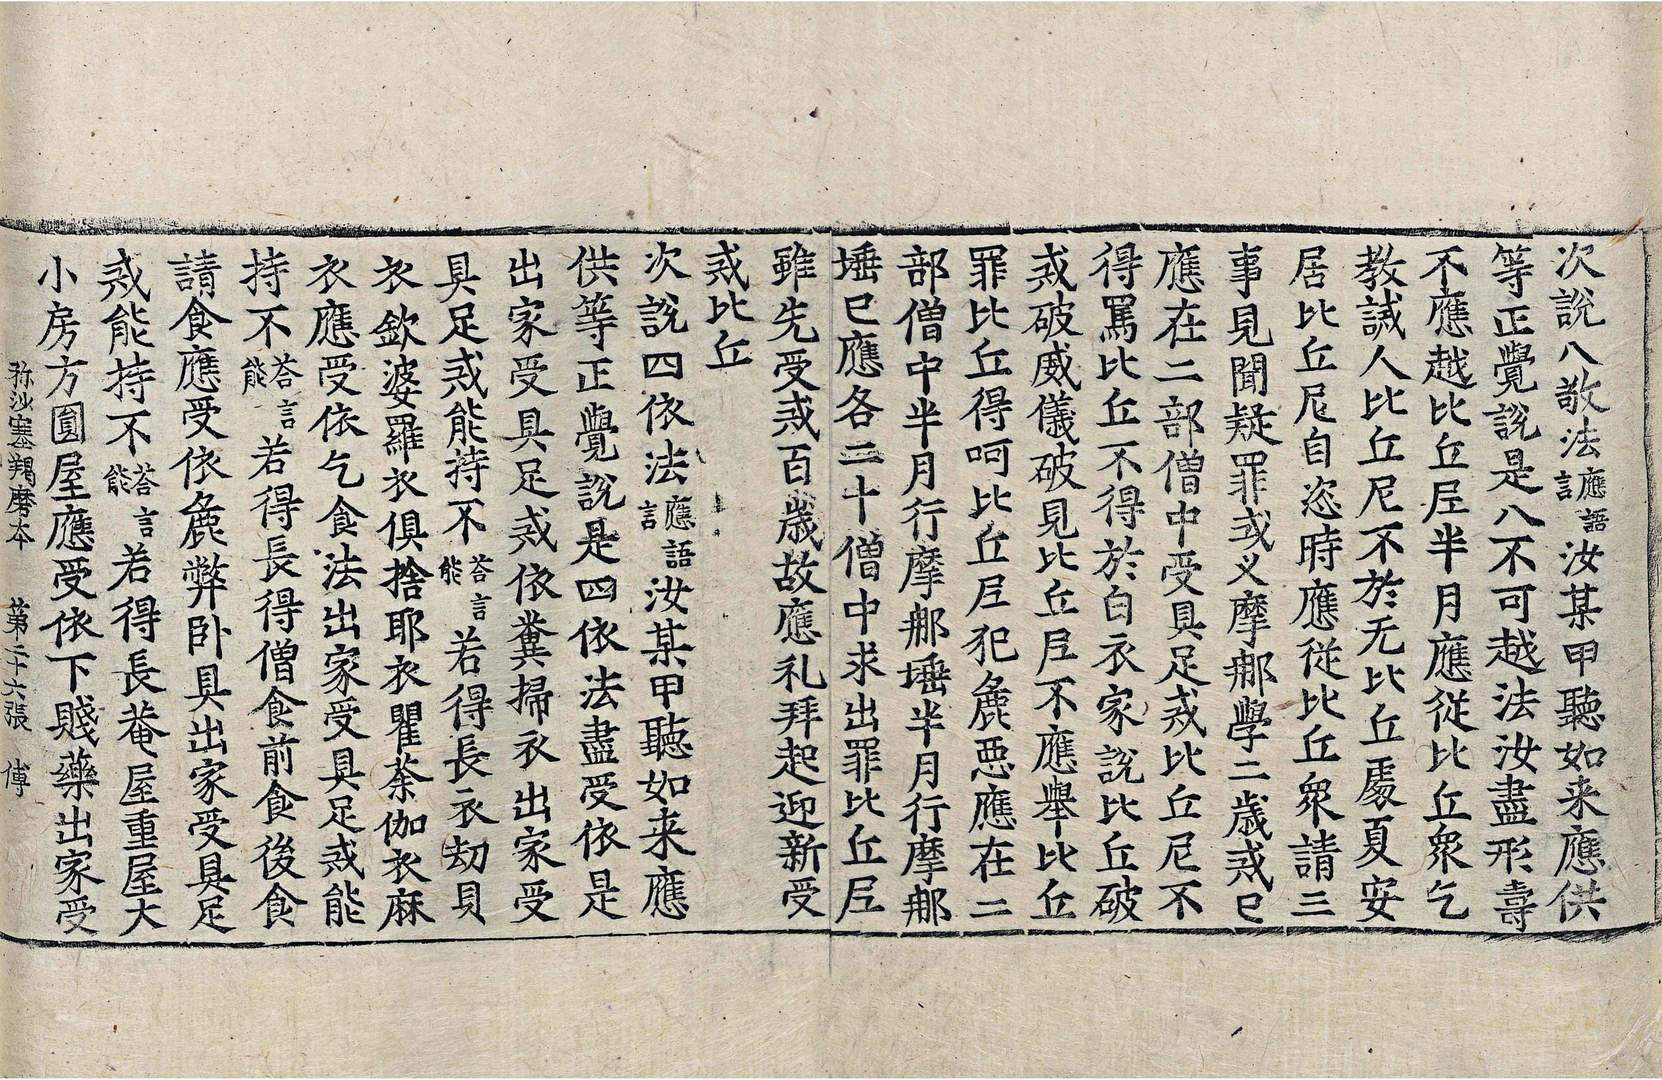 次說八敬法應語言汝某甲聽如来應供
等正覺說是八不可越法汝盡形壽
不應越比丘尼半月應從比丘衆乞
教誡人比丘尼不於无比丘處夏安
居比丘尼自恣時應從比丘衆請三
事見聞疑罪或义摩那學二歲戒已
應在二部僧中受具足戒比丘尼不
得罵比丘不得於白衣家說比丘破
戒破威儀破見比丘尼不應舉比丘
罪比丘得呵比丘尼犯麁惡應在二
部僧中半月行摩那埵半月行摩那
埵已應各二十僧中求出罪比丘尼
雖先受戒百歲故應礼拜起迎新受
戒比丘
次說四依法應語言汝某甲聽如来應
供等正覺說是四依法盡受依是
出家受具足戒依糞掃衣出家受
具足戒能持不荅言能若得長衣劫貝
衣欽婆羅衣俱捨耶衣瞿荼伽衣麻
衣應受依乞食法出家受具足戒能
持不荅言能若得長得僧食前食後食
請食應受依麁弊卧具出家受具足
戒能持不荅言能若得長菴屋重屋大
小房方圓屋應受依下賤藥出家受
弥沙塞羯磨本 第二十六張 傅